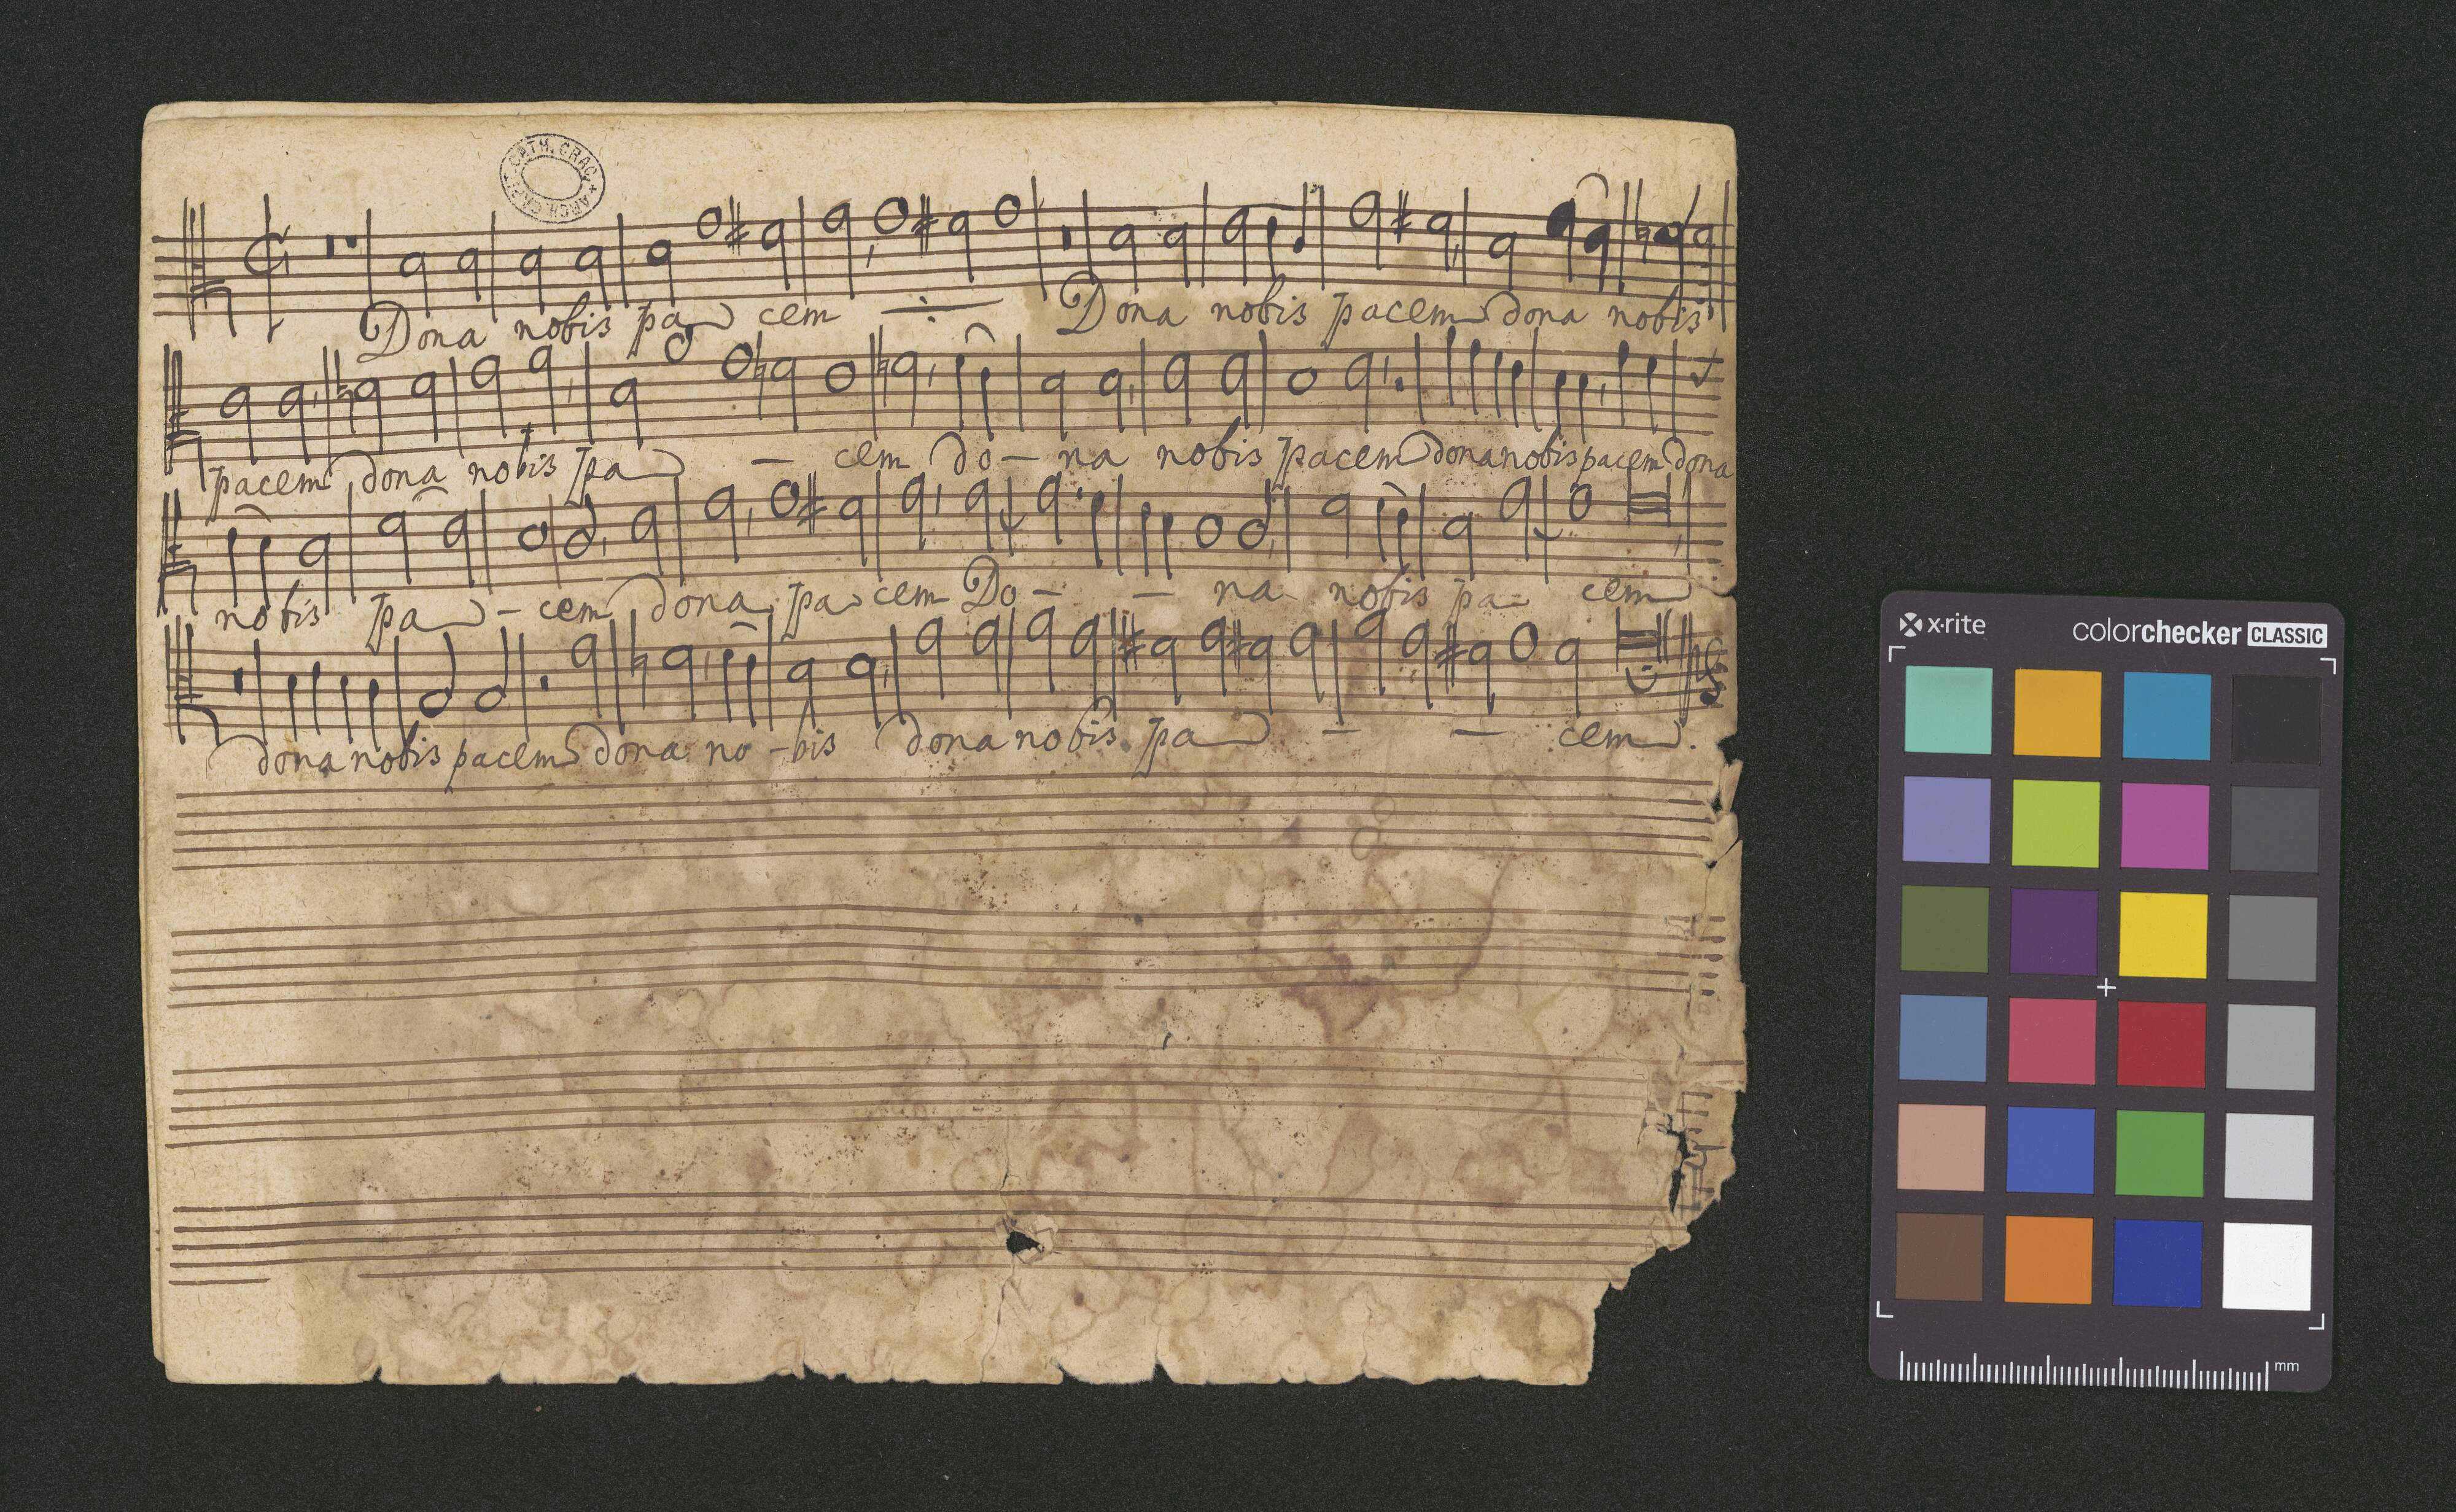 CATH. CRAC. ARCH. CAPI.
Dona nobis pa cem Dona nobis pacem dona nobis
pacem dona nobis pa - cem do - na nobis pacem dona nobis pacem dona
nobis pa - cem dona pa cem Do - - na nobis pa cem
dona nobis pacem dona no - bis dona nobis pa - - cem.
x·rite colorchecker CLASSIC
mm